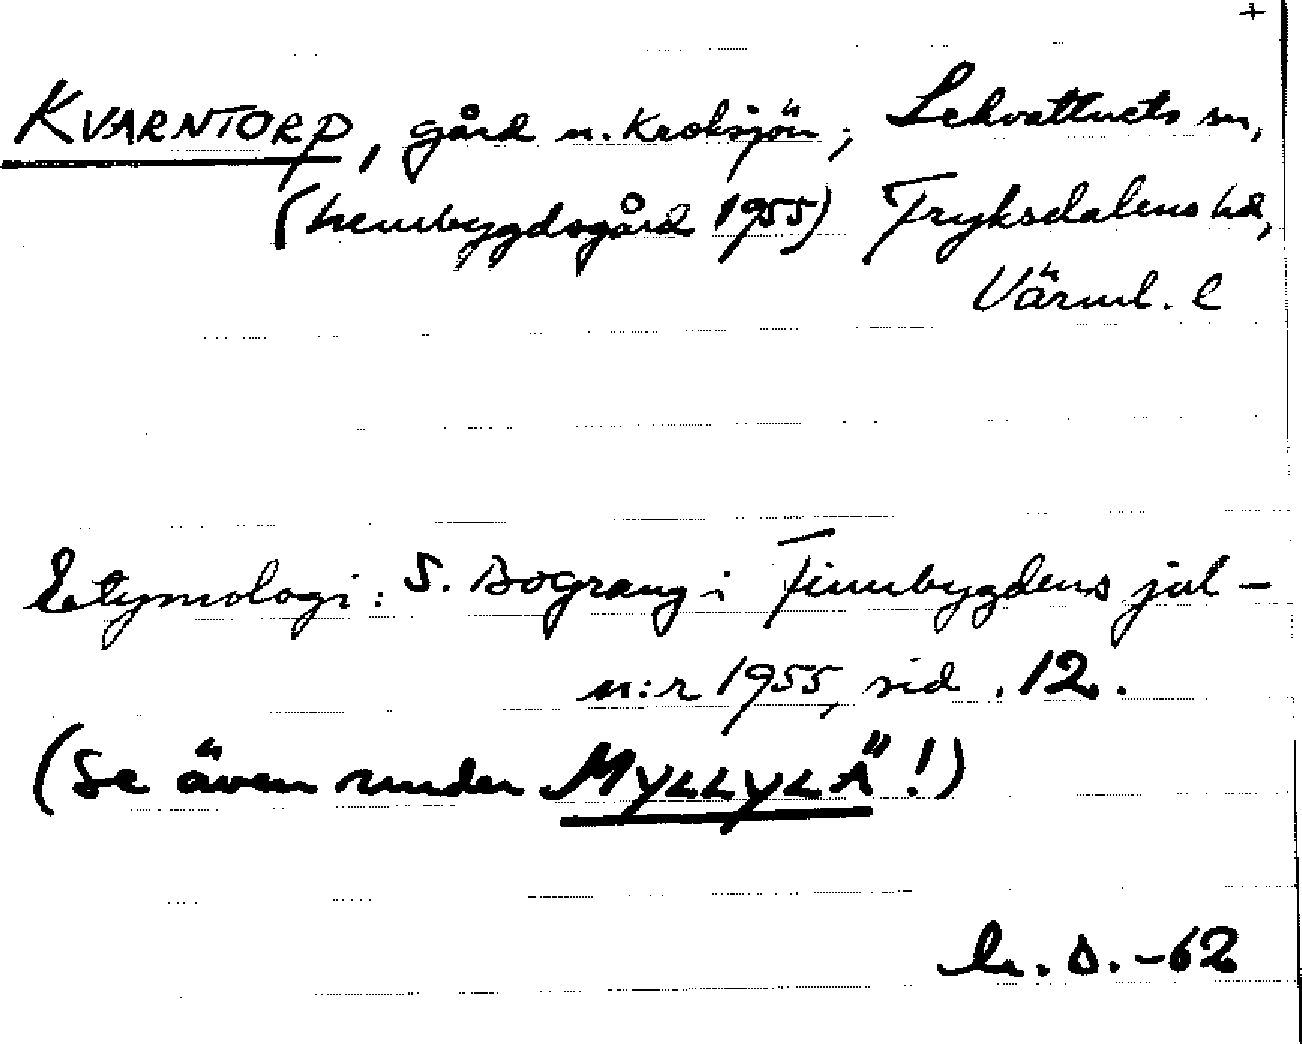 +
KVARNTORP, gård n. Kroksjön, Lekvattnets sn,
(hembygdsgård 1955) Fryksdalens hd,
Värml. l
Etymologi: S. Bograng i Finnbygdens jul-
n:r 1955, sid. 12.
(Se även under MYLLYLÄ!)
-62